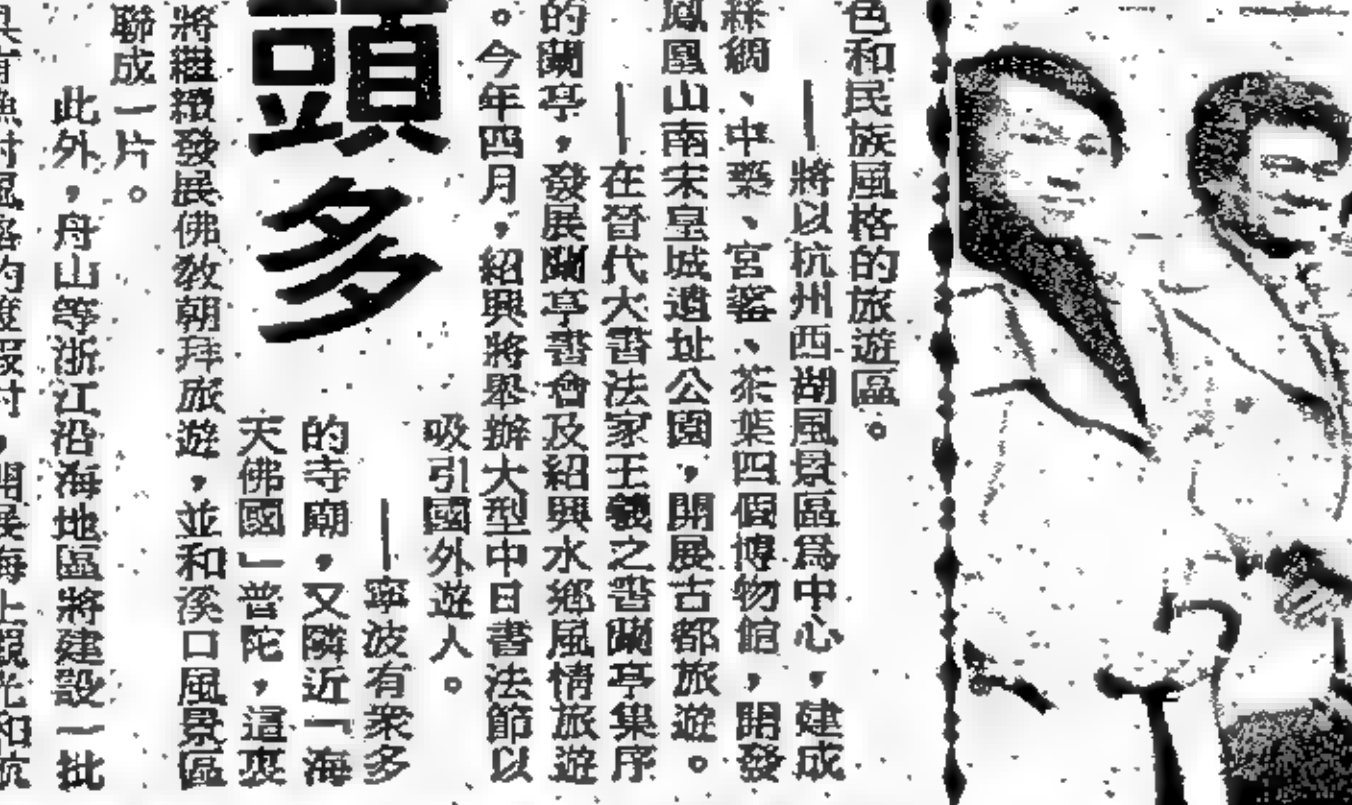 色和民族風格的旅遊區。
——將以杭州西湖風景區爲中心，建成
絲綢、中藥、宮窰、茶葉四個博物館，開發
鳳凰山南宋皇城遺址公園，開展古都旅遊。
——在晉代大書法家王羲之書蘭亭集序
的蘭亭，發展蘭亭書會及紹興水鄉風情旅遊
。今年四月，紹興將舉辦大型中日書法節以
吸引國外遊人。
——寧波有衆多
的寺廟，又隣近「海
天佛國」普陀，這裏
頭多
將繼續發展佛教朝拜旅遊，並和溪口風景區
聯成一片。
此外，舟山等浙江沿海地區將建設一批
漁村風格的渡假村，開展海上觀光和航